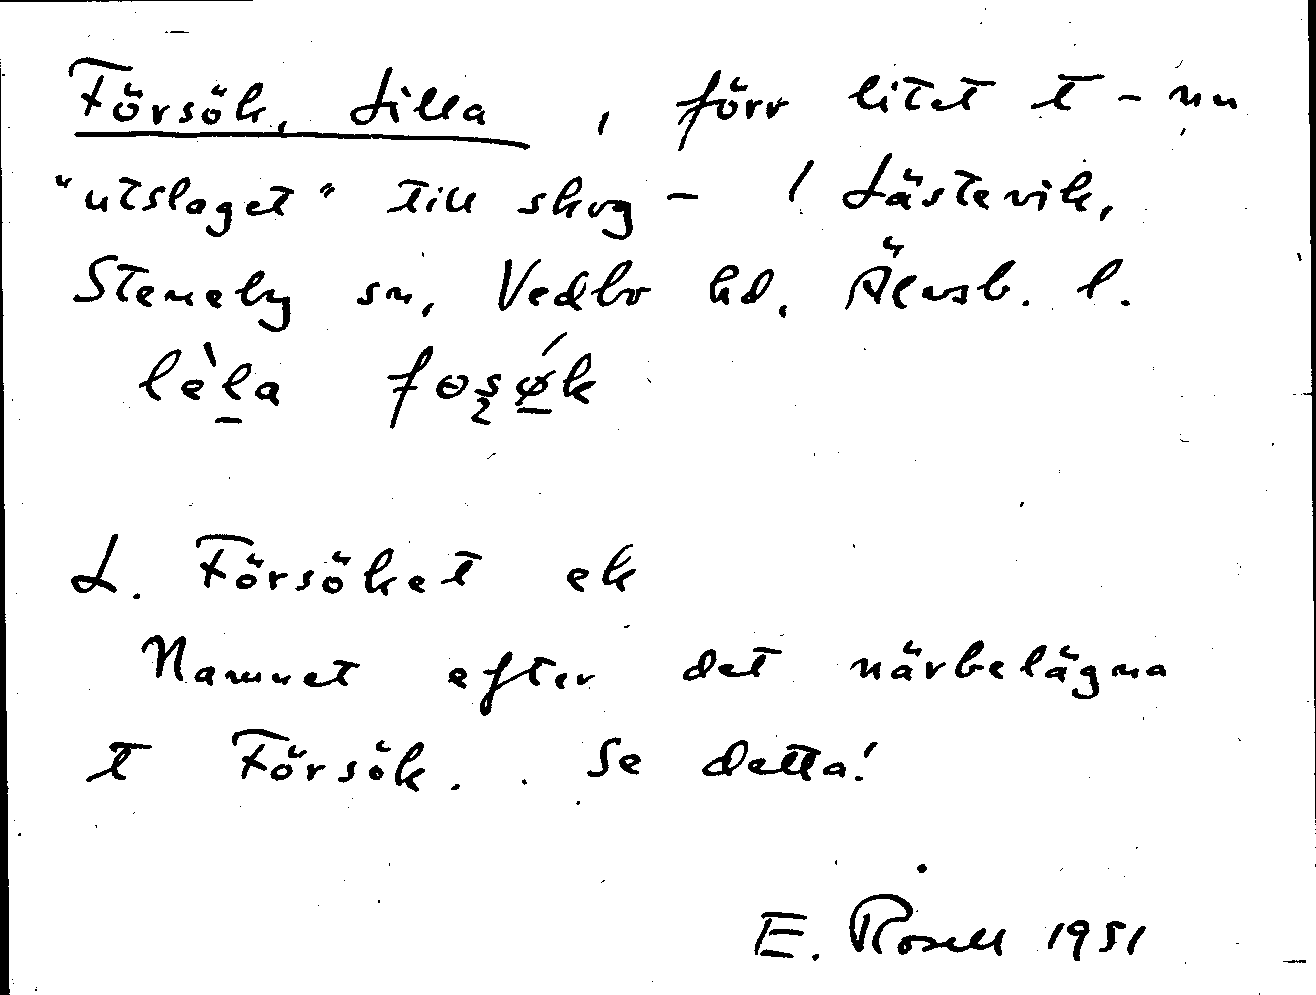 Försök, Lilla, förr litet t - nu
"utslaget" till skog - i Lästevik,
Steneby sn, Vedbo hd, Älvsb. l.
lèla foʂǿk
L. Försöket ek
Namnet efter det närbelägna
t Försök. Se detta!
E. Rosell 1951